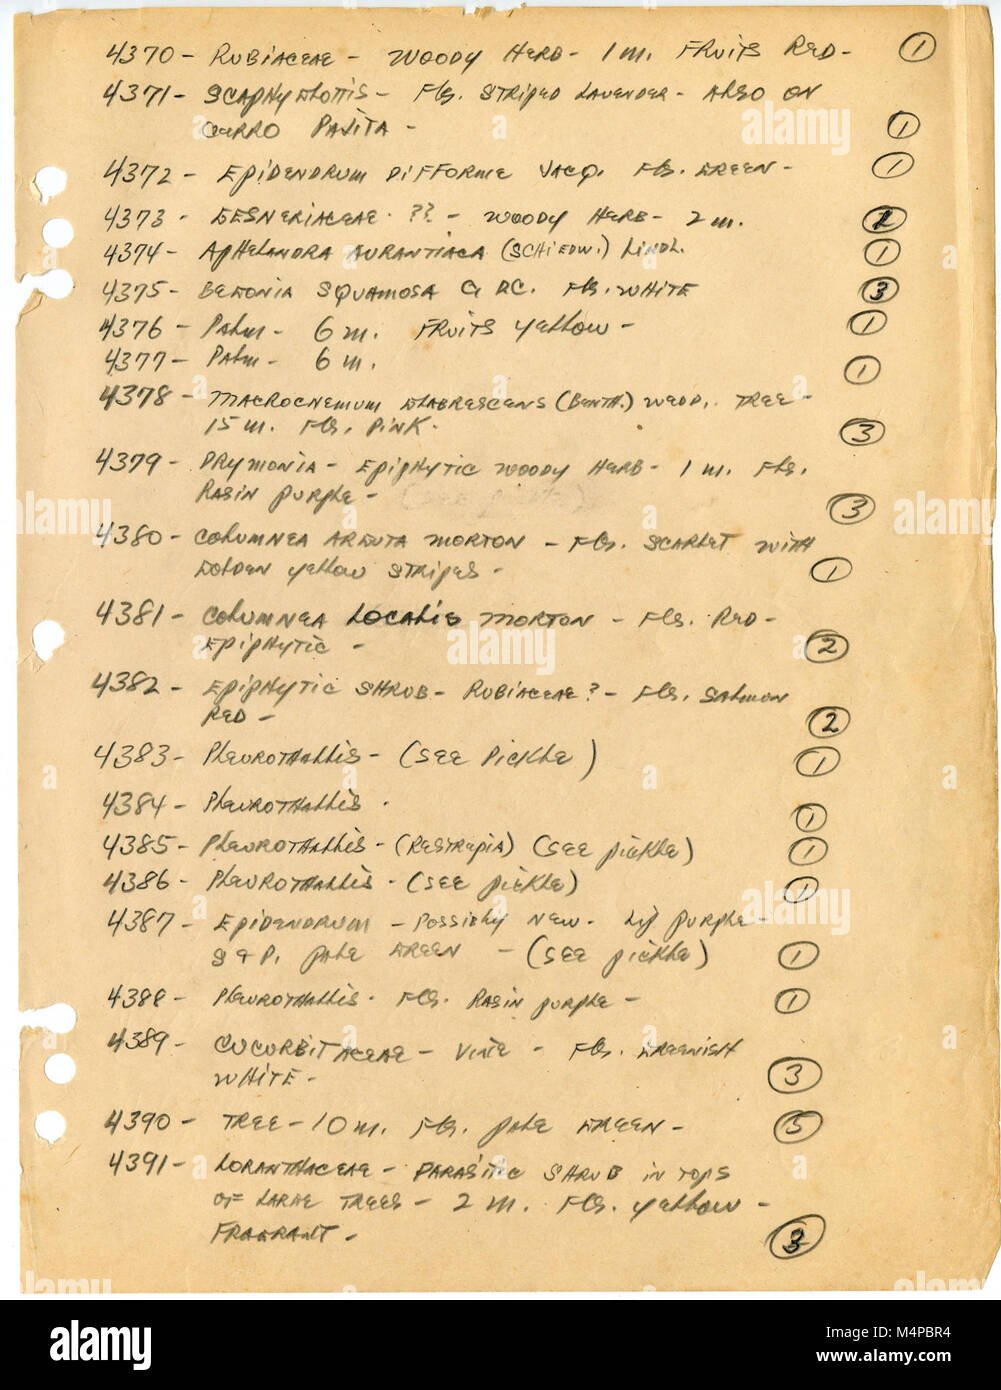 4370 - RUBIACEAE - WOODY HERB - 1 m. FRUITS RED - 1
4371 - SCAPHYGLOTTIS - FLS. STRIPED LAVENDER - ALSO ON
CERRO PAJITA - 1
4372 - EPIDENDRUM DIFFORME JACQ. FLS. GREEN - 1
4373 - GESNERIACEAE ?? - WOODY HERB - 2 m.
4374 - APHELANDRA AURANTIACA (SCHIEDW.) LINDL. 1
4375 - BEGONIA SQUAMOSA C DC. FLS. WHITE 3
4376 - PALM - 6 m. FRUITS YELLOW - 1
4377 - PALM - 6 m. 1
4378 - MACROCNEMUM GLABRESCENS (BENTH.) WEDD. TREE -
15 m. FLS. PINK. 3
4379 - DRYMONIA - EPIPHYTIC WOODY HERB - 1 m. FLS.
RASIN PURPLE - 3
4380 - COLUMNEA ARGUTA MORTON - FLS. SCARLET WITH
GOLDEN YELLOW STRIPES - 1
4381 - COLUMNEA LOCALIS MORTON - FLS. RED -
EPIPHYTIC - 2
4382 - EPIPHYTIC SHRUB - RUBIACEAE? - FLS. SALMON
RED - 2
4383 - PLEUROTHALLIS - (SEE PICKLE) 1
4384 - PLEUROTHALLIS . 1
4385 - PLEUROTHALLIS - (RESTREPIA) (SEE PICKLE) 1
4386 - PLEUROTHALLIS - (SEE PICKLE) 1
4387 - EPIDENDRUM - POSSIBLY NEW - LIP PURPLE -
S & P. PALE GREEN - (SEE PICKLE) 1
4388 - PLEUROTHALLIS - FLS. RASIN PURPLE - 1
4389 - CUCURBITACEAE - VINE - FLS. GREENISH
WHITE - 3
4390 - TREE - 10 m. FLS. PALE GREEN - 5
4391 - LORANTHACEAE - PARASITIC SHRUB IN TOPS
OF LARGE TREES - 2 m. FLS. YELLOW -
FRAGRANT - 3
alamy
Image ID: M4PBR4
www.alamy.com